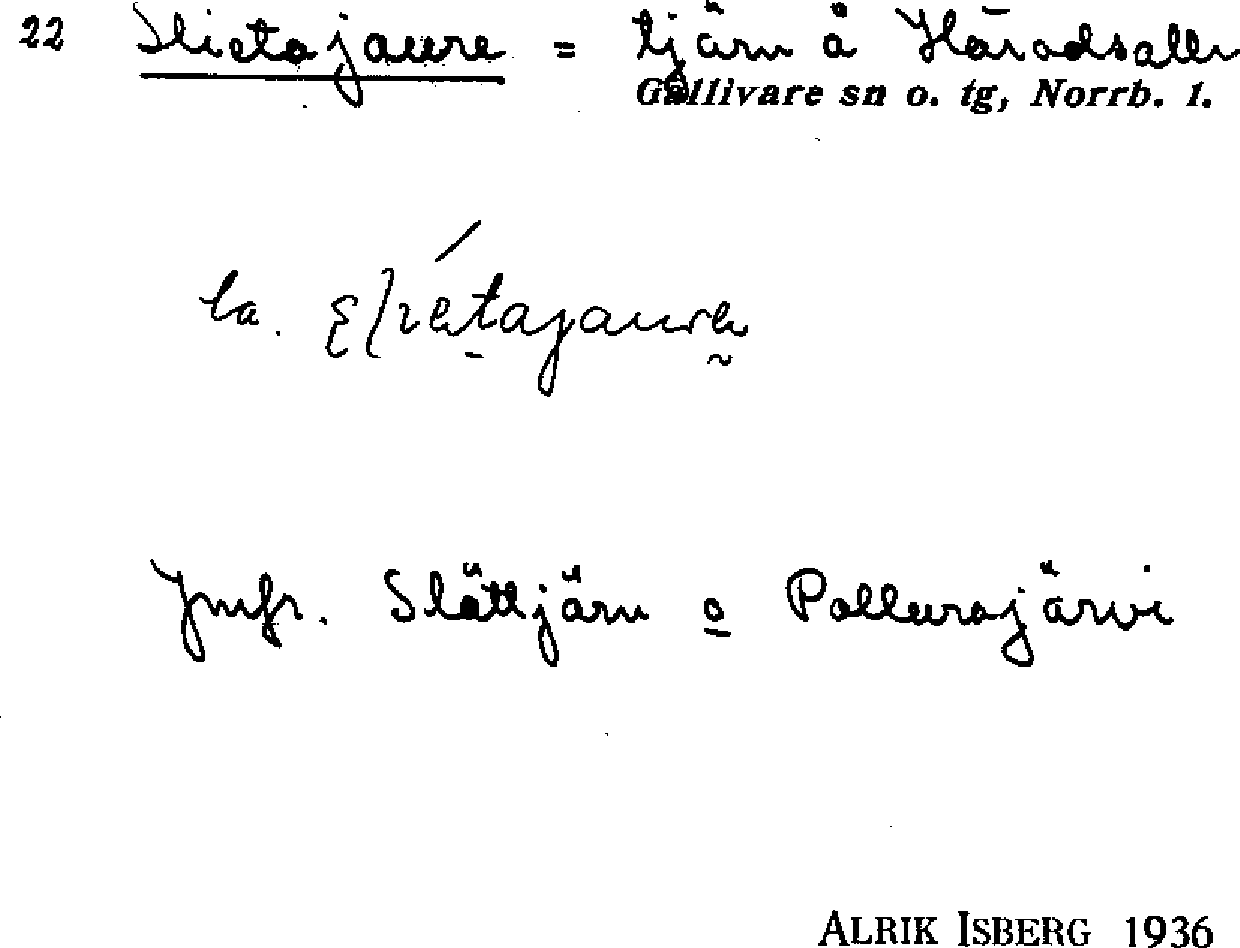 22 Slietajaure = tjärn å Häradsallm
Gällivare sn o. tg, Norrb. l.
la.
Jmfr. Slättjärn o Pollurajärvi
ALRIK ISBERG 1936